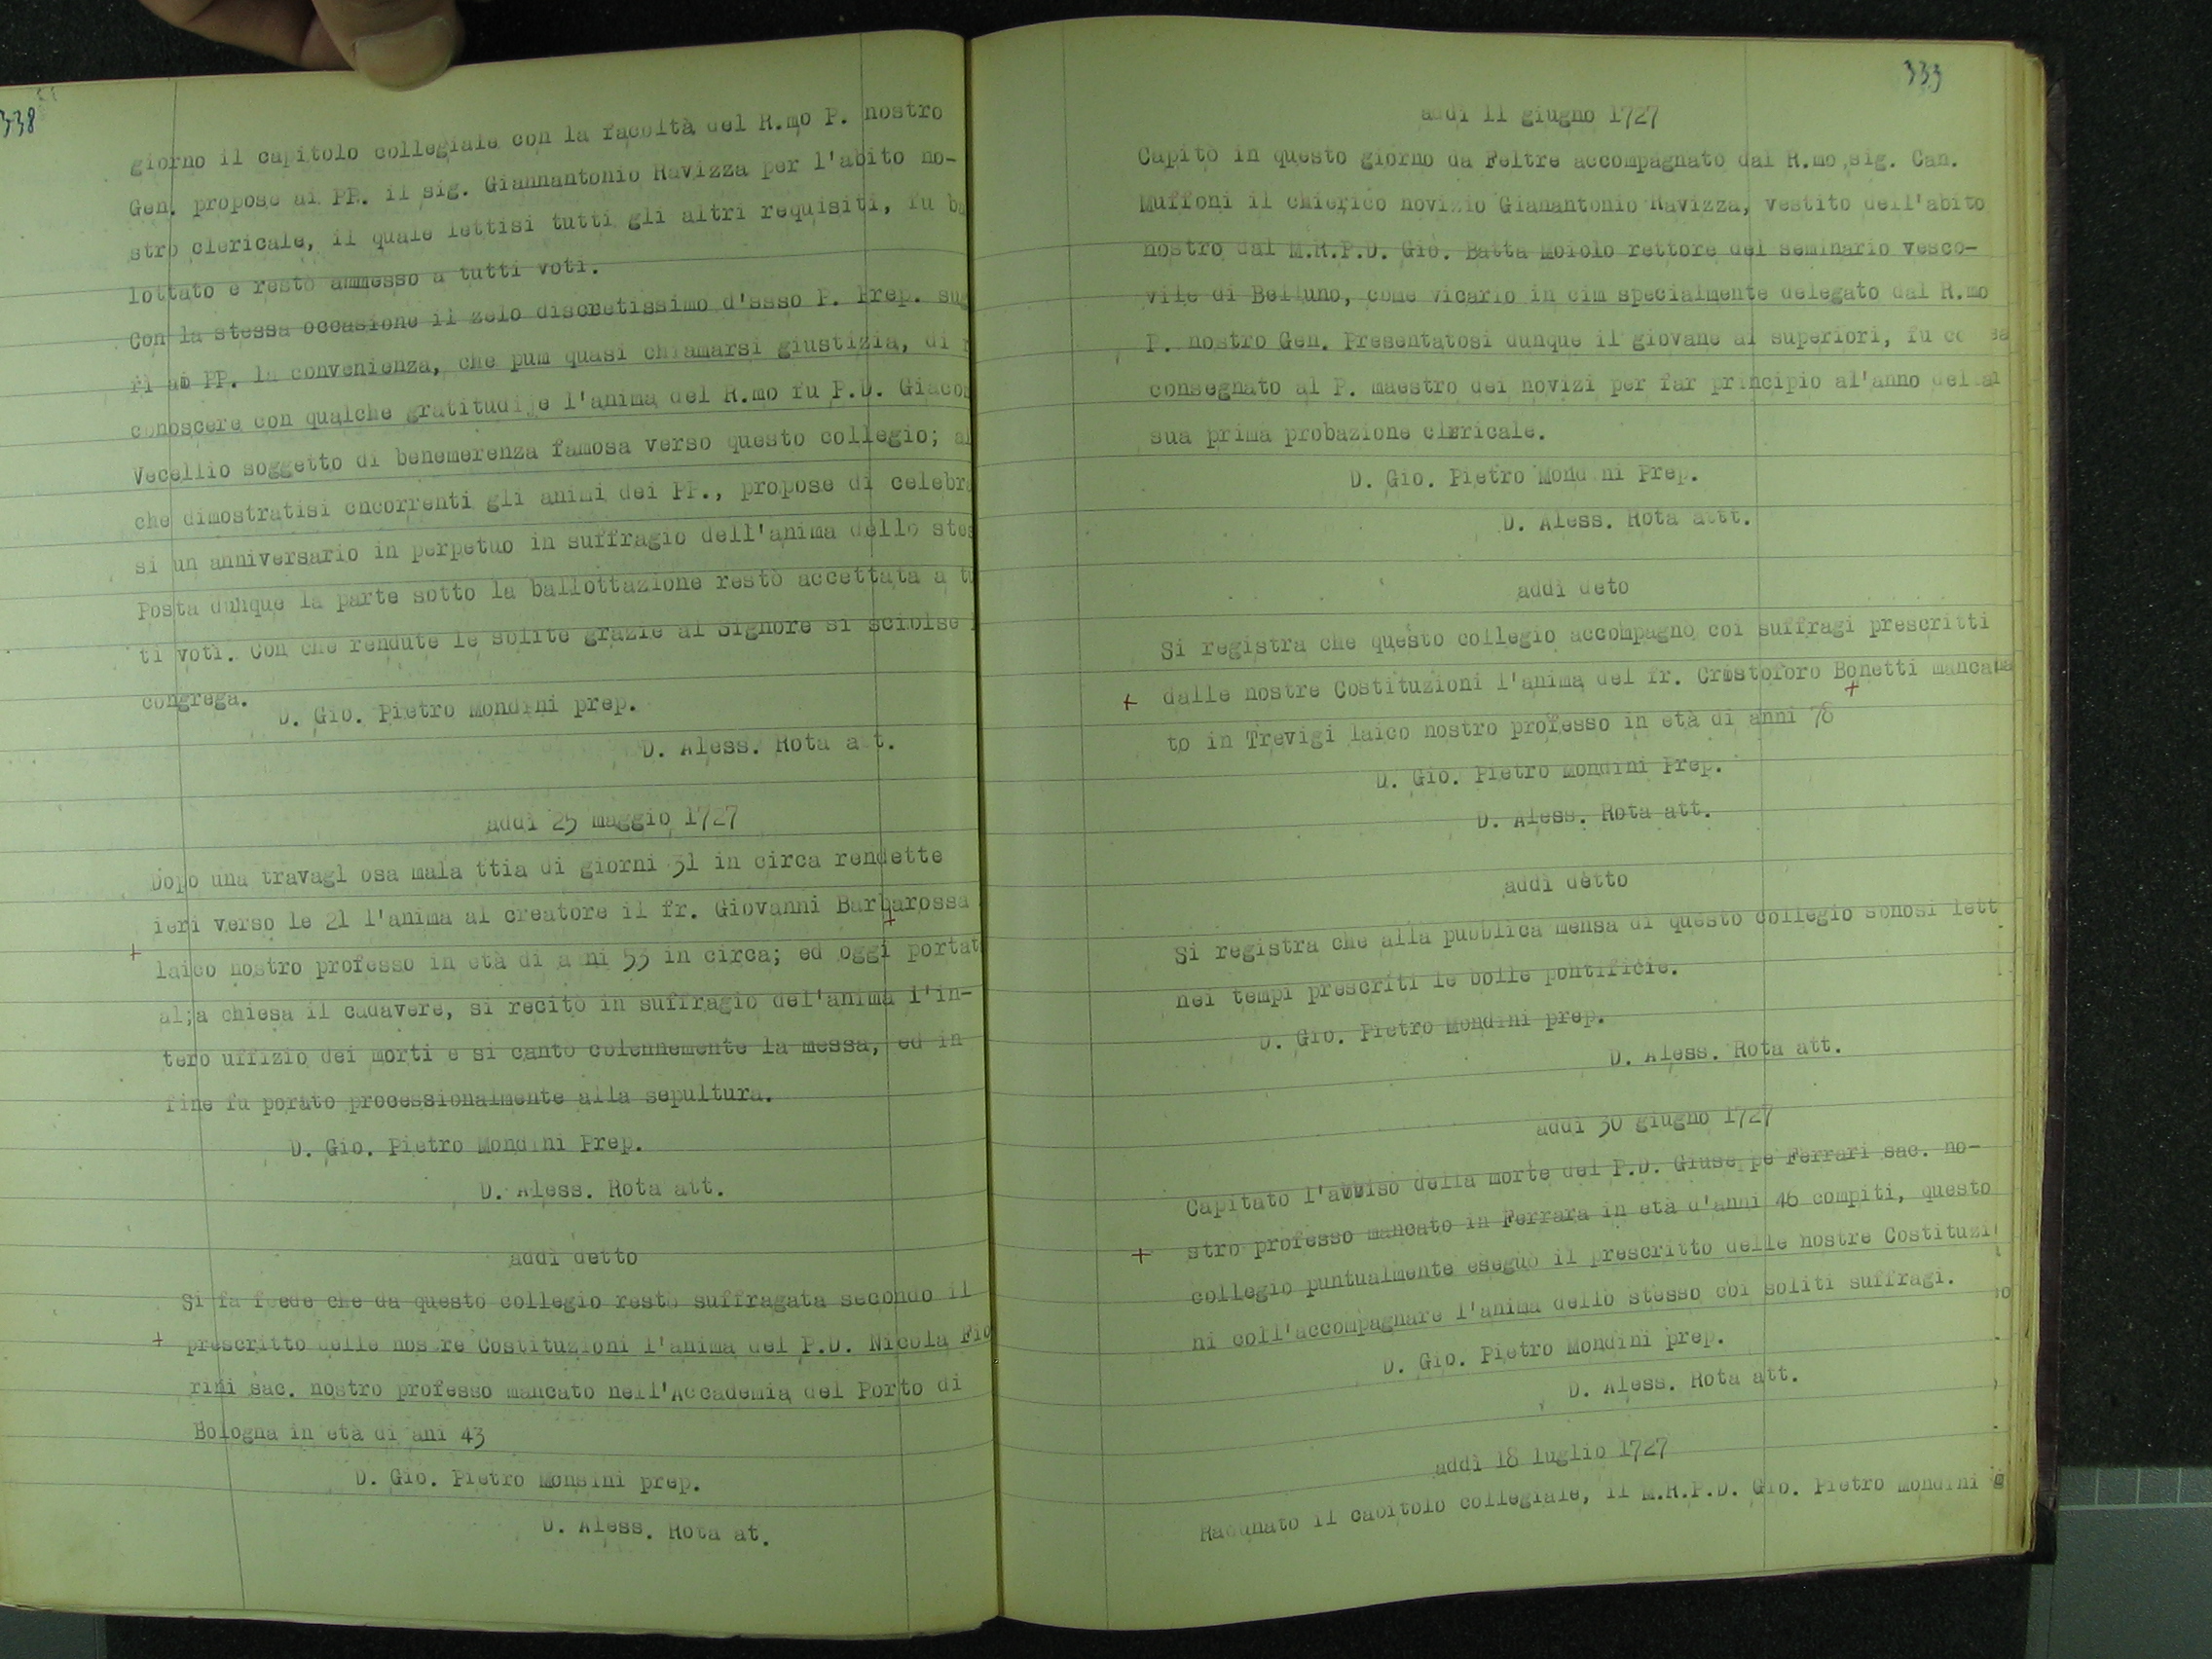 338
giorno il capitolo collegiale con la facoltà del R.mo P. nostro
Gen. propose ai PP. il sig. Giannantonio Ravizza per l'abito no-
stro clericale, il quale lettisi tutti gli altri requisiti, fu ba
lottato e restò ammesso a tutti voti.
Con la stessa occasione il zelo discretissimo d'ssso P. Prep. sug
rì ai PP. la convenienza, che pum quasi chiamarsi giustizia, di r
conoscere con qualche gratitudije l'anima del R.mo fu P.D. Giacom
Vecellio soggetto di benemerenza famosa verso questo collegio; al
che dimostratisi cncorrenti gli animi dei PP., propose di celebra
si un anniversario in perpetuo in suffragio dell'anima dello stes
Posta dunque la parte sotto la ballottazione restò accettata a tu
ti voti. Con che rendute le solite grazie al Signore si sciolse l
congrega.
D. Gio. Pietro Mondini prep.
D. Aless. Rota a t.
addì 25 maggio 1727
Dopo una travagl osa mala ttia di giorni 31 in circa rendette
ieri verso le 21 l'anima al creatore il fr. Giovanni Barbarossa
+ laico nostro professo in età di a ni 53 in circa; ed oggi portat
al;a chiesa il cadavere, si recitò in suffragio del'anima l'in-
tero uffizio dei morti e si cantò colennemente la messa, ed in
fine fu portato processionalmente alla sepultura.
D. Gio. Pietro Mondini Prep.
D. Aless. Rota att.
addì detto
Si fa feede che da questo collegio restò suffragata secondo il
+ prescritto delle nostre Costituzioni l'anima del P.D. Nicola Fio
rini sac. nostro professo mancato nell'Accademia del Porto di
Bologna in età di ani 43
D. Gio. Pietro Monsini prep.
D. Aless. Rota at.
333
andì 11 giugno 1727
Capitò in questo giorno da Feltre accompagnato dal R.mo sig. Can.
Muffoni il chierico novizio Gianantonio Ravizza, vestito dell'abito
nostro dal M.R.P.D. Gio. Batta Moiolo rettore del seminario vesco-
vile di Belluno, come vicario in cim specialmente delegato dal R.mo
P. nostro Gen. Presentatosi dunque il giovane ai superiori, fu co
consegnato al P. maestro dei novizi per far principio al'anno della
sua prima probazione clericale.
D. Gio. Pietro Mond ni Prep.
D. Aless. Rota attt.
addì deto
Si registra che questo collegio accompagnò coi suffragi prescritti
+ dalle nostre Costituzioni l'anima del fr. Cristoforo Bonetti manca
to in Trevigi laico nostro professo in età di anni 78
D. Gio. Pietro Mondini Prep.
D. Aless. Rota att.
addì detto
Si registra che alla pubblica mensa di questo collegio sonosi lett
nei tempi prescriti le bolle pontificie.
D. Gio. Pietro Mondini prep.
D. Aless. Rota att.
addì 30 giugno 1727
Capitato l'avviso della morte del P.D. Giuse pe Ferrari sac. no-
+ stro professo mancato in Ferrara in età d'anni 46 compiti, questo
collegio puntualmente eseguò il prescritto delle nostre Costituzi
ni coll'accompagnare l'anima dello stesso coi soliti suffragi.
D. Gio. Pietro Mondini prep.
D. Aless. Rota att.
addì 18 luglio 1727
Radunato il capitolo collegiale, il M.R.P.D. Gio. Pietro Mondini